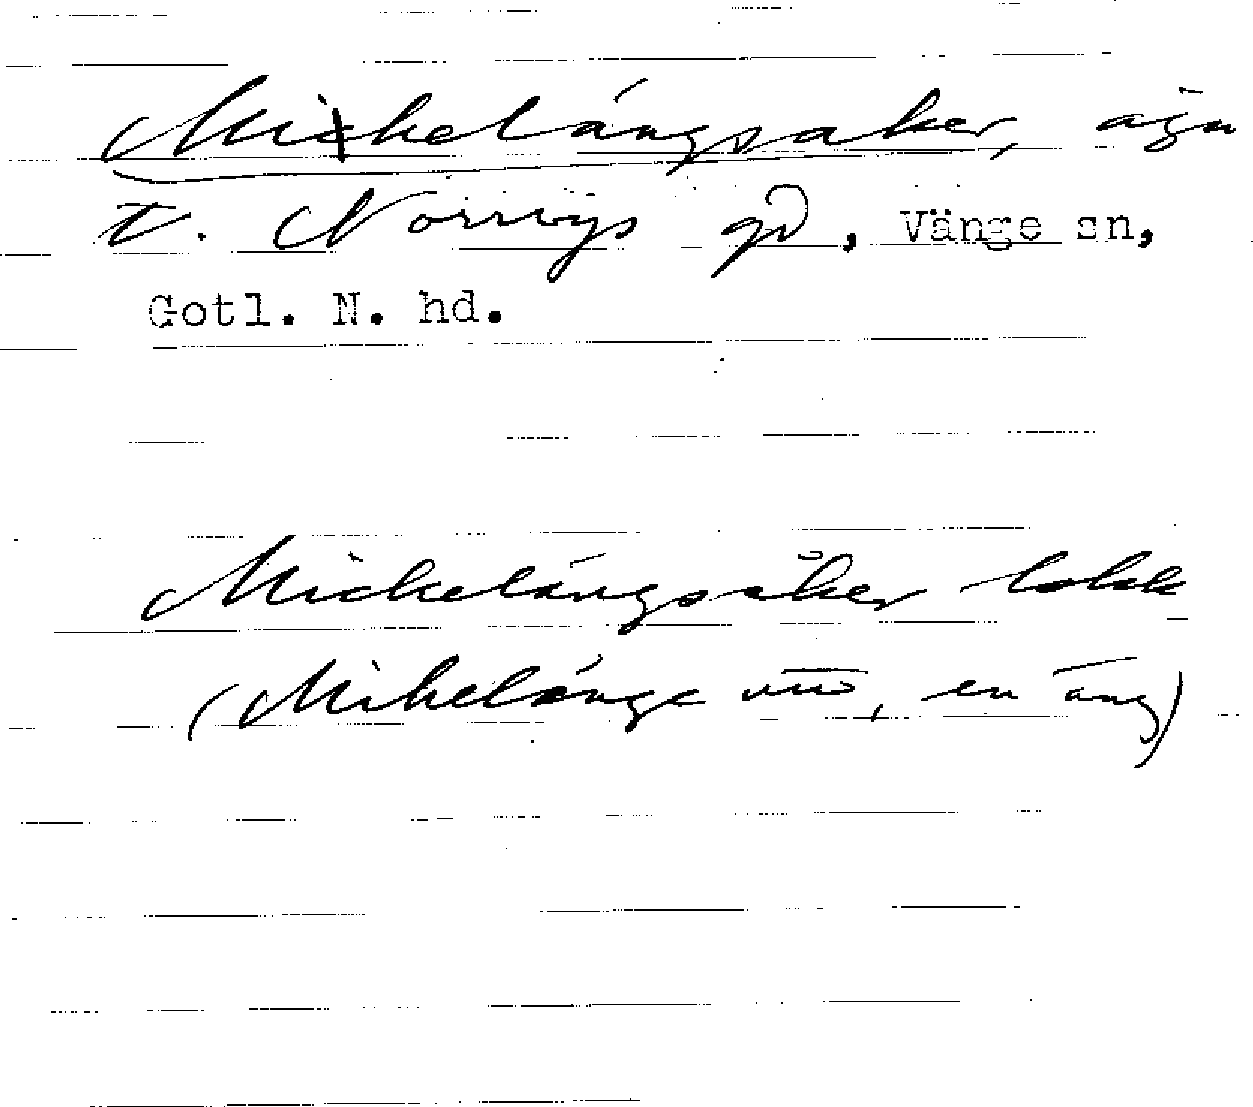 Mickelängsåker, ägn
t. Norrbys gd, Vänge sn,
Gotl. N. hd.
Mickelängsåker lokk
(Mikelänge vm, en äng)